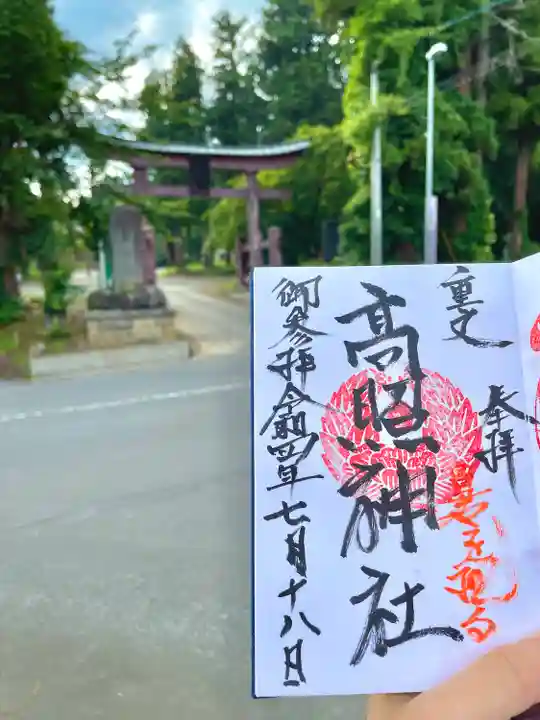 重文
奉拝
高照神社
御参拝令和四年七月十八日